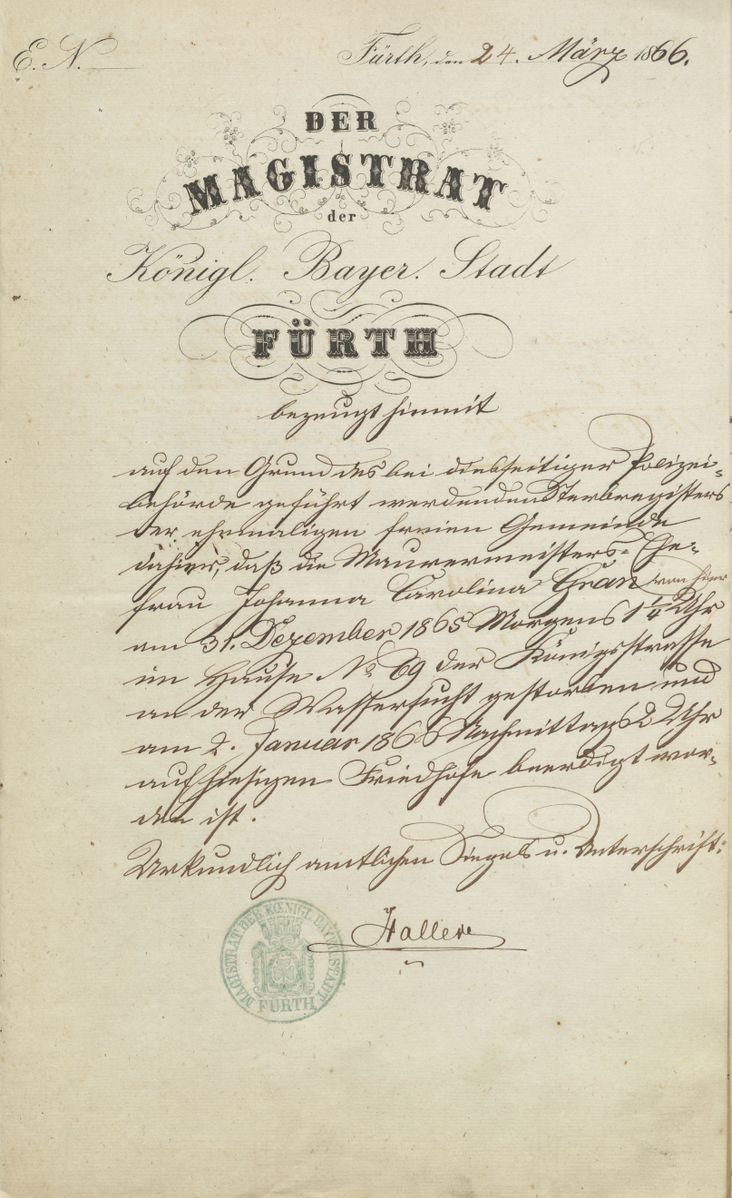 E. N.
Fürth, den 24. März 1866.
DER
MAGISTRAT
der
Königl. Bayer. Stadt
FÜRTH
bezeugt hiemit
auf den Grund des bei diesseitiger Polizei-
behörde geführt werdenden Sterbregisters
der ehemaligen freien Gemeinde
dahier, daß die Maurermeisters-Ehe-
frau Johanna Carolina von hier
am 31. Dezember 1865 Morgens 1 1/4 Uhr
im Hause No 69 der Königsstrasse
an der Wassersucht gestorben und
am 2. Januar 1866 Nachmittags 2 Uhr
auf hiesigem Friedhofe beerdigt wor-
den ist.
Urkundlich amtlichen Siegels u. Unterschrift.
MAGISTRAT DER KŒNIGL. BAYER. STADT
FÜRTH